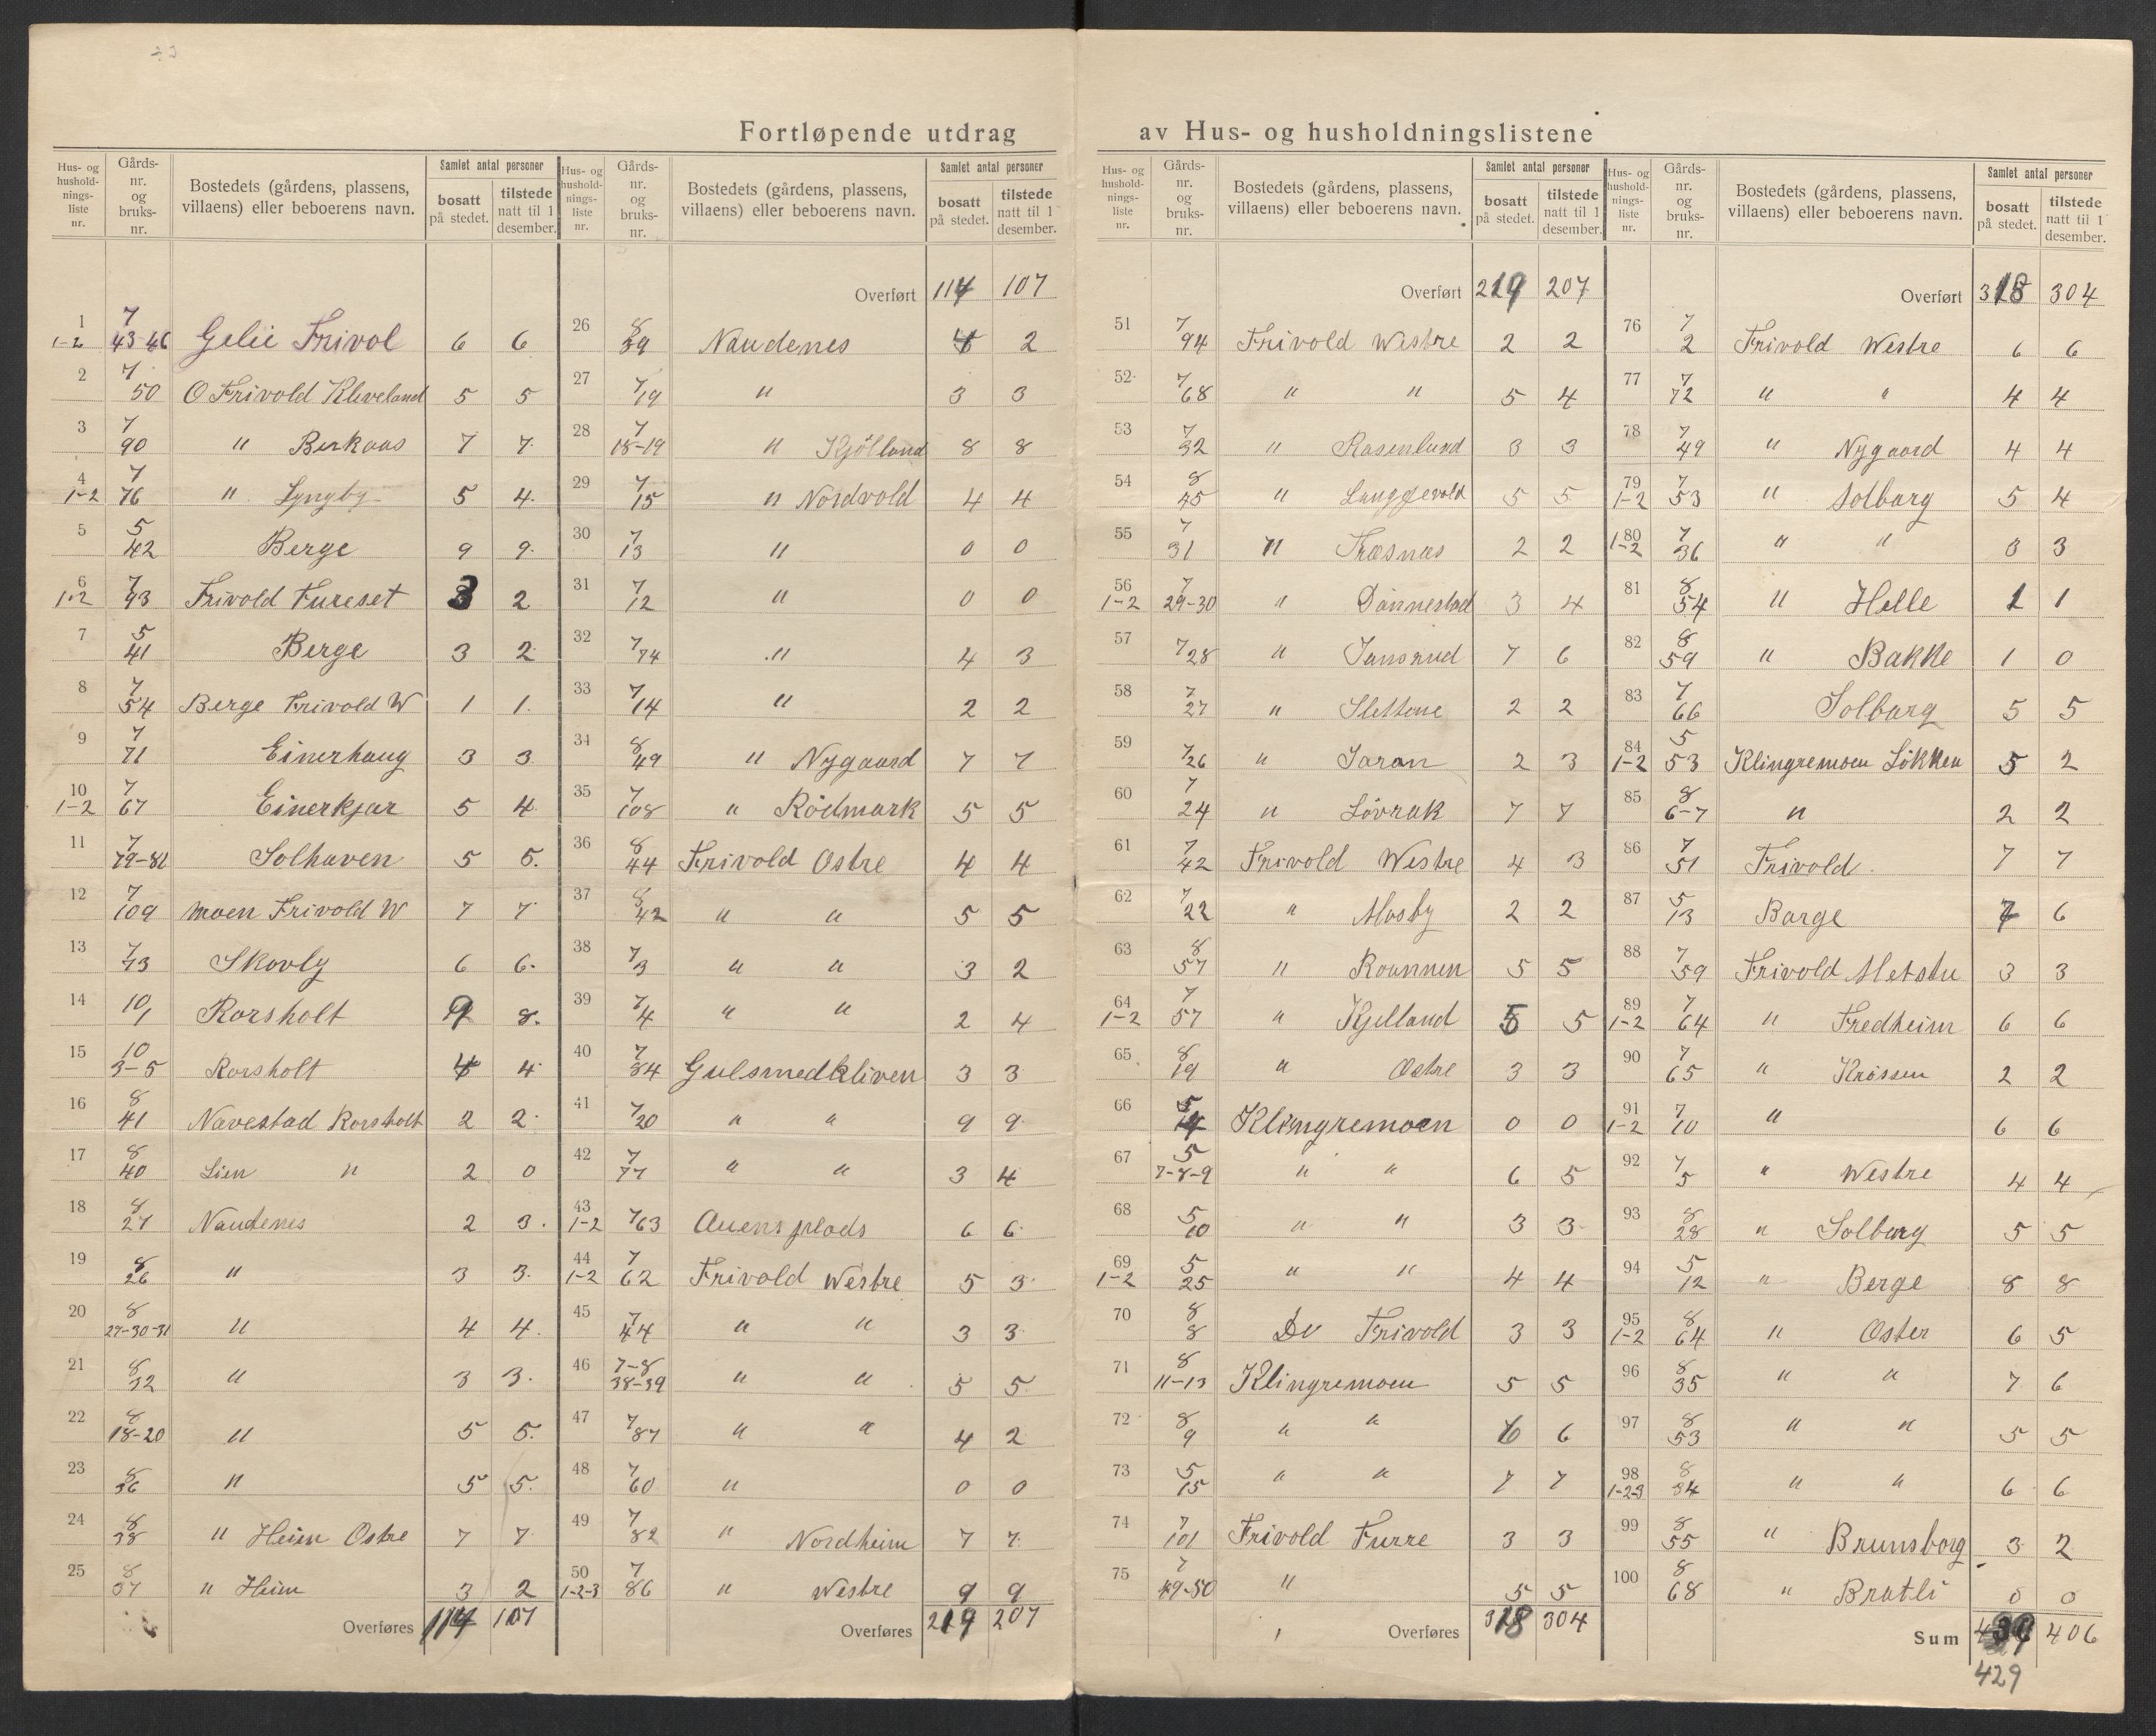 Fortløpende utdrag av Hus- og husholdningslistene
Hus- og husholdningsliste nr. Gårdsnr. og bruksnr. Bostedets (gårdens, plassens, villaens) eller beboerens navn. Samlet antal personer bosatt på stedet. tilstede natt til 1 desember.
1 1-2 7 43-46 Gelie Frivol 6 6
2 7 50 O Frivold Kleveland 5 5
3 7 90 " Berkaas 7 7
4 1-2 7 76 " Lyngby 5 4
5 5 42 Berge 9 9
6 1-2 7 93 Frivold Fureset 3 2
7 5 41 Berge 3 2
8 7 54 Berge Frivold W 1 1
9 7 71 Einerhaug 3 3
10 1-2 7 67 Einerkjær 5 4
11 7 79-81 Solhaven 5 5
12 7 109 Moen Frivold W 7 7
13 7 73 Skovly 6 6
14 10/1 Rorsholt 9 8
15 10 3-5 Rorsholt 4 4
16 8 41 Navestad Rorsholt 2 2
17 8 40 Lien " 2 0
18 8 27 Naudenes 2 3
19 8 26 " 3 3
20 8 29-30-31 " 4 4
21 8 32 " 3 3
22 8 18-20 " 5 5
23 8 36 " 5 5
24 8 38 " Heim Ostre 7 7
25 8 37 " Heim 3 2
Overføres 114 107
Hus- og husholdningsliste nr. Gårdsnr. og bruksnr. Bostedets (gårdens, plassens, villaens) eller beboerens navn. Samlet antal personer bosatt på stedet. tilstede natt til 1 desember.
Overført 114 107
26 8 39 Naudenes 4 2
27 7/19 " 3 3
28 7 18-19 " Kjölland 8 8
29 7 15 " Nordvold 4 4
30 7 13 " 0 0
31 7 12 " 0 0
32 7/74 " 4 3
33 7/14 " 2 2
34 8 49 " Nygaard 7 7
35 7 108 " Rödmark 5 5
36 8 44 Frivold Ostre 4 4
37 8 42 " " 5 5
38 7/3 " " 3 2
39 7/4 " " 2 4
40 7 34 Gulsmedkliven 3 3
41 7/20 " " 9 9
42 7 77 " " 3 4
43 1-2 7/63 Auensplads 6 6
44 1-2 7 62 Frivold Westre 5 3
45 7 44 " " 3 3
46 7-8 38-39 " " 5 5
47 7/87 " " 4 2
48 7 60 " 0 0
49 7 82 " Nordheim 7 7
50 1-2-3 7 86 " Westre 9 9
Overføres 219 207
Hus- og husholdningsliste nr. Gårdsnr. og bruksnr. Bostedets (gårdens, plassens, villaens) eller beboerens navn. Samlet antal personer bosatt på stedet. tilstede natt til 1 desember.
Overført 219 207
51 7 94 Frivold Westre 2 2
52 7/68 " " 5 4
53 7 32 " Rosenlund 3 3
54 8 45 " 5 5
55 7 31 " Træsnæs 2 2
56 1-2 7 29-30 " Dannestad 3 4
57 7/28 " Jansrud 7 6
58 7 27 " Slettene 2 2
59 7/26 " Jaran 2 3
60 7 24 " Lövrak 7 7
61 7 42 Frivold Westre 4 3
62 7 22 " Mosby 2 2
63 8 57 " Roannen 5 5
64 1-2 7 57 " Kjelland 5 5
65 8 19 " Ostre 3 3
66 5 14 Klingremoen 0 0
67 5 7-8-9 " " 6 5
68 5 10 " " 3 3
69 1-2 5 25 " " 4 4
70 8 8 Do Frivold 3 3
71 8 11-13 Klingremoen 5 5
72 8 9 " " 6 6
73 5 15 " " 7 7
74 7 101 Frivold Furre 3 3
75 7 49-50 " 5 5
Overføres 318 304
Hus- og husholdningsliste nr. Gårdsnr. og bruksnr. Bostedets (gårdens, plassens, villaens) eller beboerens navn. Samlet antal personer bosatt på stedet. tilstede natt til 1 desember.
Overført 318 304
76 7 2 Frivold Westre 6 6
77 7 72 " " 4 4
78 7 49 " Nygaard 4 4
79 1-2 7 53 " Solbarg 5 4
80 1-2 7 36 " " 3
81 8 54 " Helle 1 1
82 8 59 " Bakke 1 0
83 7 66 Solbarg 5 5
84 1-2 5 53 Klingremoen Lökken 5 2
85 8 6-7 " 2 2
86 7 51 Frivold 7 7
87 5 13 Barge 7 6
88 7 59 Frivold 3 3
89 1-2 7 64 " Fredheim 6 6
90 7 65 " Krossen 2 2
91 1-2 7 10 " 6 6
92 7 5 " Westre 4 4
93 8 28 " Solberg 5 5
94 5 12 " Berge 8 8
95 1-2 8 64 " Oster 6 5
96 8 35 " " 7 6
97 8 53 " " 5 5
98 1-2-3 8 34 " " 6 6
99 8 55 " Brunsborg 3 2
100 8 68 " Bratli 0 0
Sum 406
429